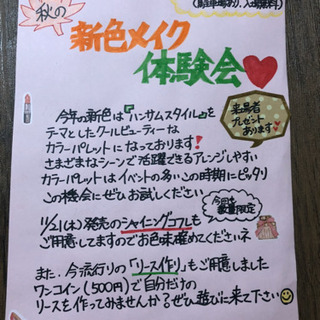 (駐車場あり、入場無料)
秋の
新色メイク
体験会
今年の新色は『ハンサムスタイル』を
テーマとしたクールビューティーな
カラーパレットに なっております!
さまざまなシーンで活躍できるアレンジしやすい
カラーパレットはイベントの多いこの時期にピッタリ
この機会にぜひお試しください
来場者
プレゼント
あります
11/21(木)発売のシャイニングコフレも
ご用意してますのでお色味確めてくださいネ
今回も
数量限定
また、今流行りの「リース作り」もご用意しました
ワンコイン(500円)で自分だけの
リースを作ってみませんか?ぜひ遊びに来て下さい